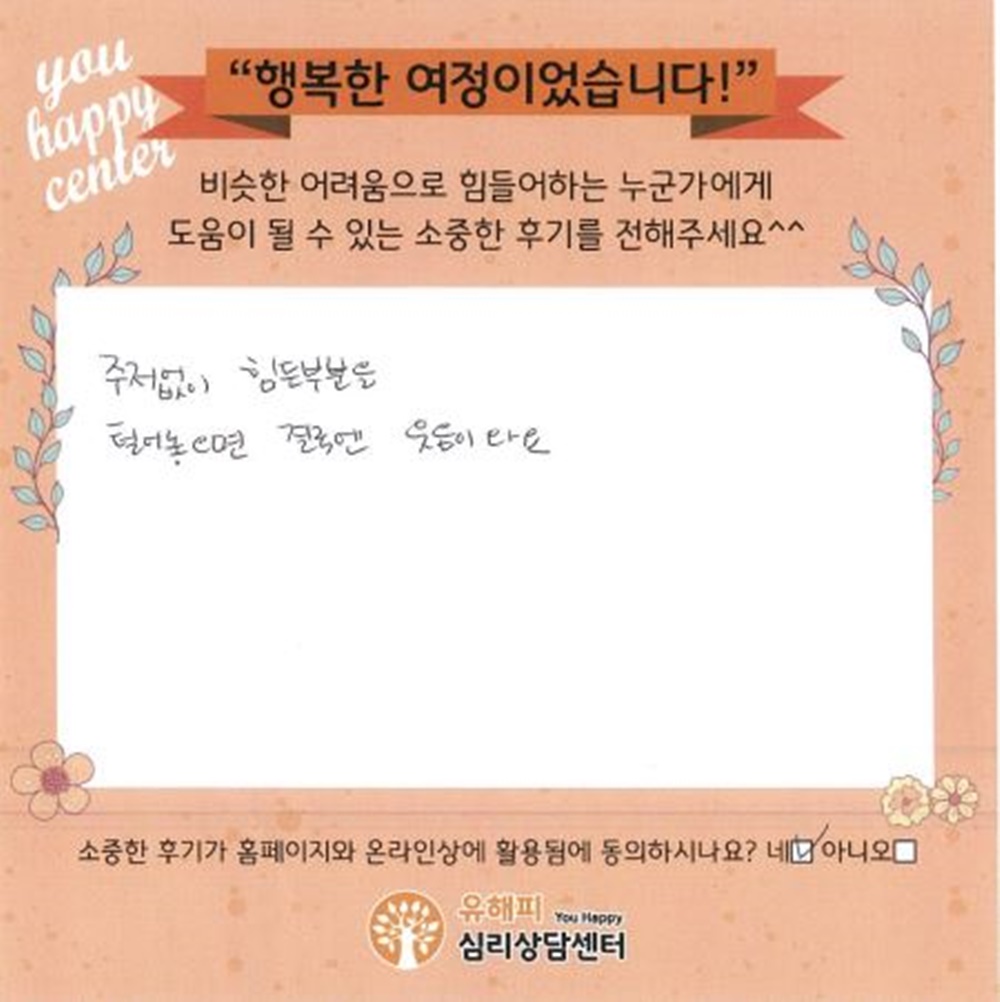 you
happy
center
“행복한 여정이었습니다!”
비슷한 어려움으로 힘들어하는 누군가에게
도움이 될 수 있는 소중한 후기를 전해주세요^^
주저없이 힘든부분을
털어놓으면 결국엔 웃음이 나요
소중한 후기가 홈페이지와 온라인상에 활용됨에 동의하시나요? 네 아니오
유해피 You Happy
심리상담센터